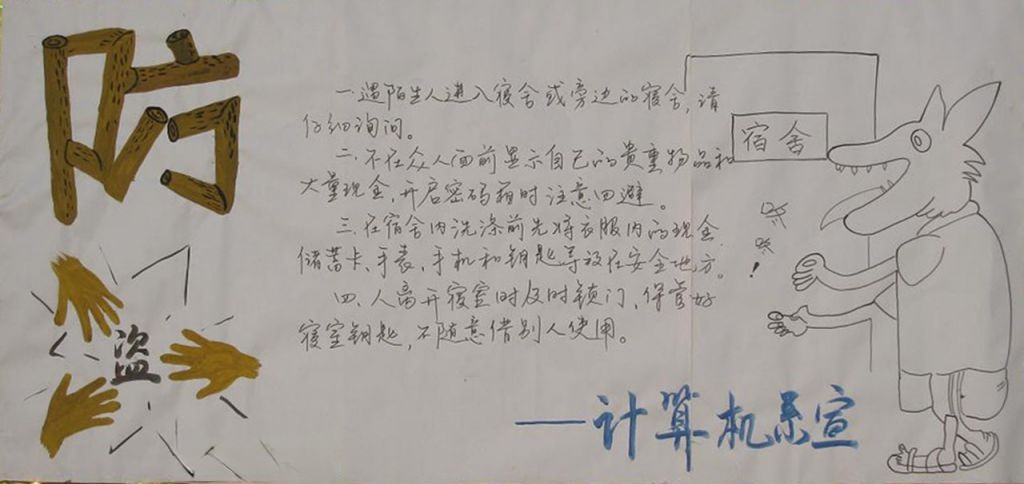 防
盗
一.遇陌生人进入宿舍或旁边的宿舍,请
仔细询问。
二.不在众人面前显示自己的贵重物品和
大量现金,开启密码箱时注意回避。
三.在宿舍内洗涤前先将衣服内的现金、
储蓄卡、手表、手机和钥匙等放在安全地方。
四.人离开寝室时及时锁门,保管好
寝室钥匙,不随意借别人使用。
宿舍
——计算机系宣